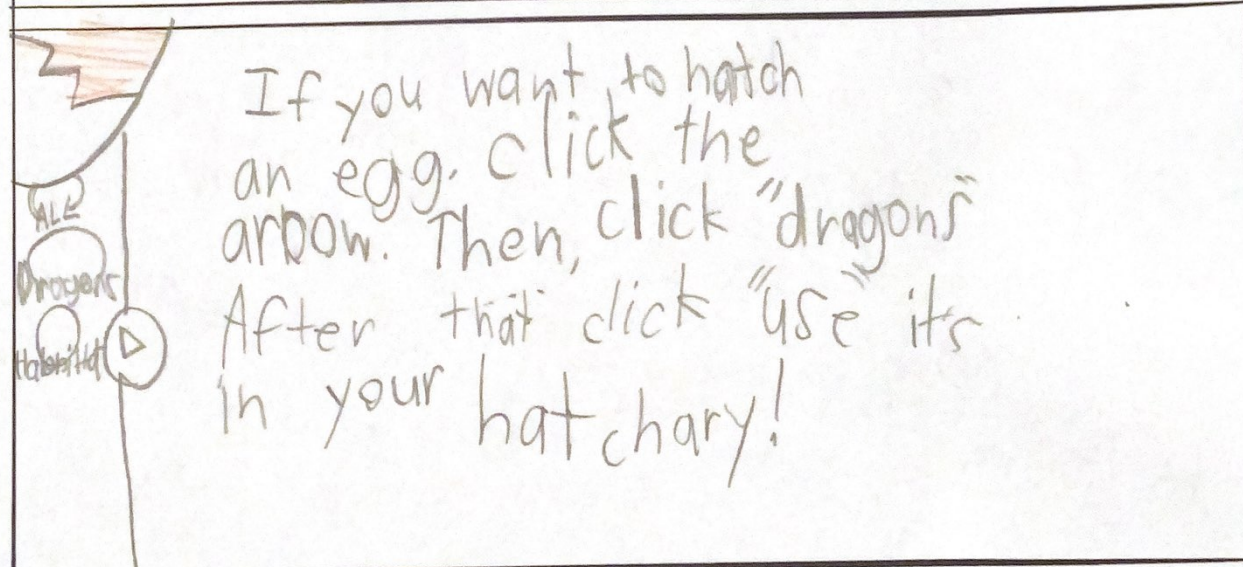 ALL
Dragons
Habbitat
If you want to hatch
an egg. click the
arbow. Then, click "dragons"
After that click "use" its
in your hatchary!